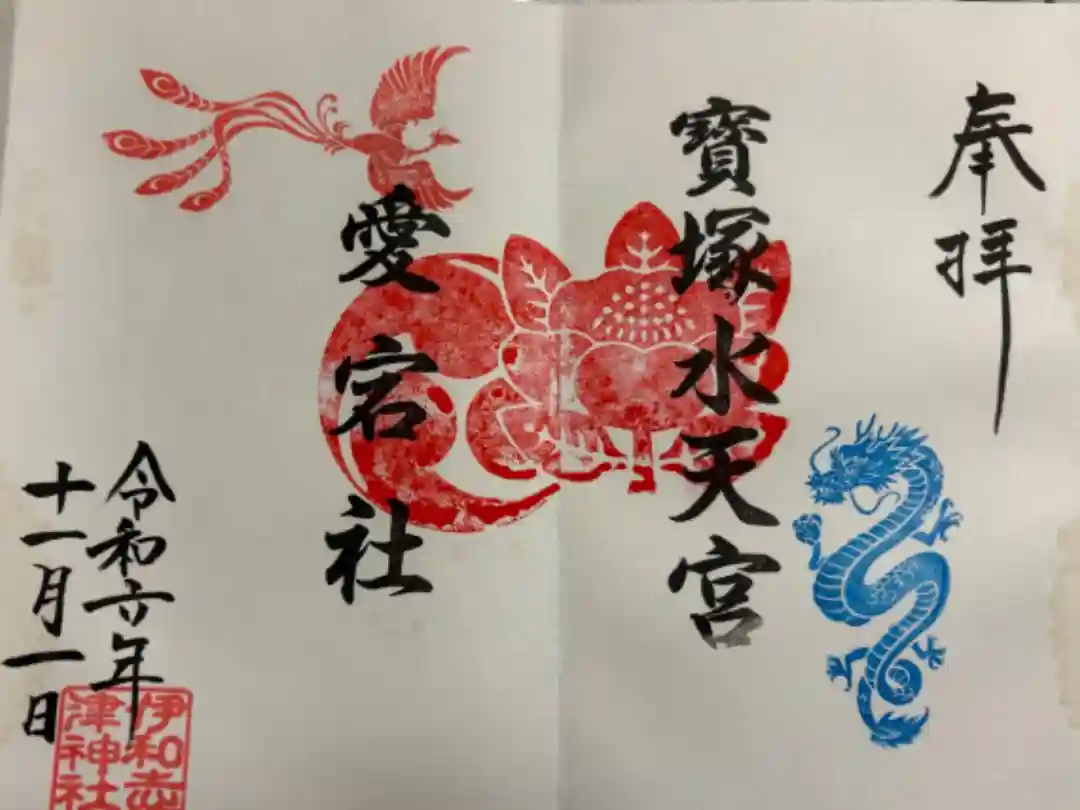 奉拝
寶塚水天宮
愛宕社
令和六年
十一月一日
伊和志
津神社